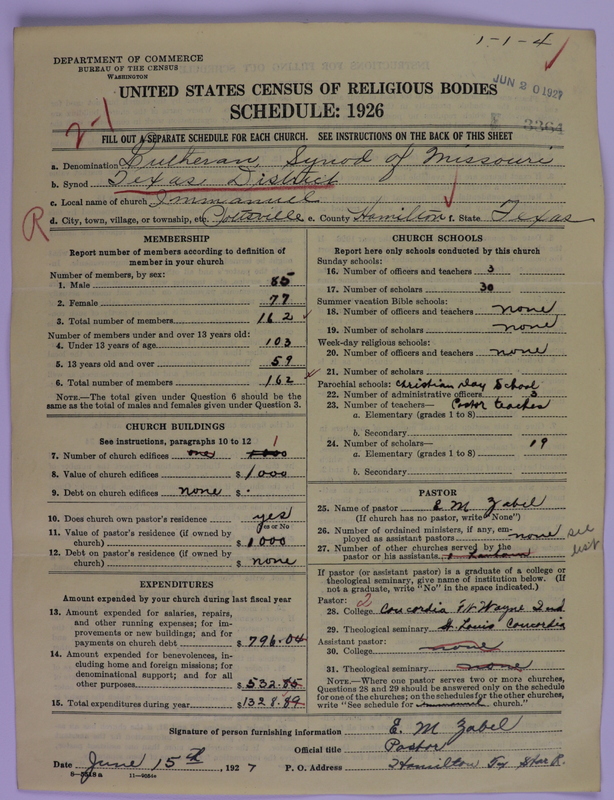 1-1-4
DEPARTMENT OF COMMERCE
BUREAU OF THE CENSUS
WASHINGTON
UNITED STATES CENSUS OF RELIGIOUS BODIES
JUN 20 1927
SCHEDULE: 1926
2-1
FILL OUT A SEPARATE SCHEDULE FOR EACH CHURCH. SEE INSTRUCTIONS ON THE BACK OF THIS SHEET
a. Denomination Lutheran Synod of Missouri
b. Synod Texas District
c. Local name of church Immanuel
R
d. City, town, village, or township, etc. Pottsville e. County Hamilton f. State Texas
MEMBERSHIP
Report number of members according to definition of
member in your church
Number of members, by sex:
1. Male 85
2. Female 77
3. Total number of members 162
Number of members under and over 13 years old:
4. Under 13 years of age 103
5. 13 years old and over 59
6. Total number of members 162
NOTE.—The total given under Question 6 should be
same as the total of males and females given under Question 3.
CHURCH BUILDINGS
See instructions, paragraphs 10 to 12
7. Number of church edifices one 1
8. Value of church edifices $ 1000
9. Debt on church edifices none $
10. Does church own pastor's residence yes
Yes or No
11. Value of pastor's residence (if owned by
church) $ 1000
12. Debt on pastor's residence (if owned by
church) $ none
EXPENDITURES
Amount expended by church during last fiscal year
13. Amount expended for salaries, repairs,
and other running expenses; for im-
provements or new buildings; and for
payments on church debt $ 796.04
14. Amount expended for benevolences, in-
cluding home and foreign missions; for
denominational support; and for all
other purposes $ 532.85
15. Total expenditures during year $ 1328.89
CHURCH SCHOOLS
Report here only schools conducted by this church
Sunday schools:
16. Number of officers and teachers 3
17. Number of scholars 30
Summer vacation Bible schools:
18. Number of officers and teachers none
19. Number of scholars none
Week-day religious schools:
20. Number of officers and teachers none
21. Number of scholars
Parochial schools: Christian Day School
22. Number of administrative officers 3
23. Number of teachers— Pastor teaches
a. Elementary (grades 1 to 8)
b. Secondary
24. Number of scholars— 19
a. Elementary (grades 1 to 8)
b. Secondary
PASTOR
25. Name of pastor E. M. Zabel
(If church has no pastor, write "None")
26. Number of ordained ministers, if any, em-
ployed as assistant pastors none
see list
27. Number of other churches served by the
pastor or his assistants
If pastor (or assistant pastor) is a graduate of a college or
theological seminary, give name of institution below. (If
not a graduate, write "No" in the space indicated.)
Pastor: 2
28. College Concordia Ft Wayne Ind
29. Theological seminary St. Louis Concordia
Assistant pastor:
30. College none
31. Theological seminary none
NOTE.—Where one pastor serves two or more churches,
Questions 28 and 29 should be answered only on the schedule
for one of the churches; on the schedules for the other churches,
write "See schedule for church."
Signature of person furnishing information E. M. Zabel
Official title Pastor
Date June 15th, 1927 P. O. Address Hamilton Tex Star R.
8—5518a 11—9054a